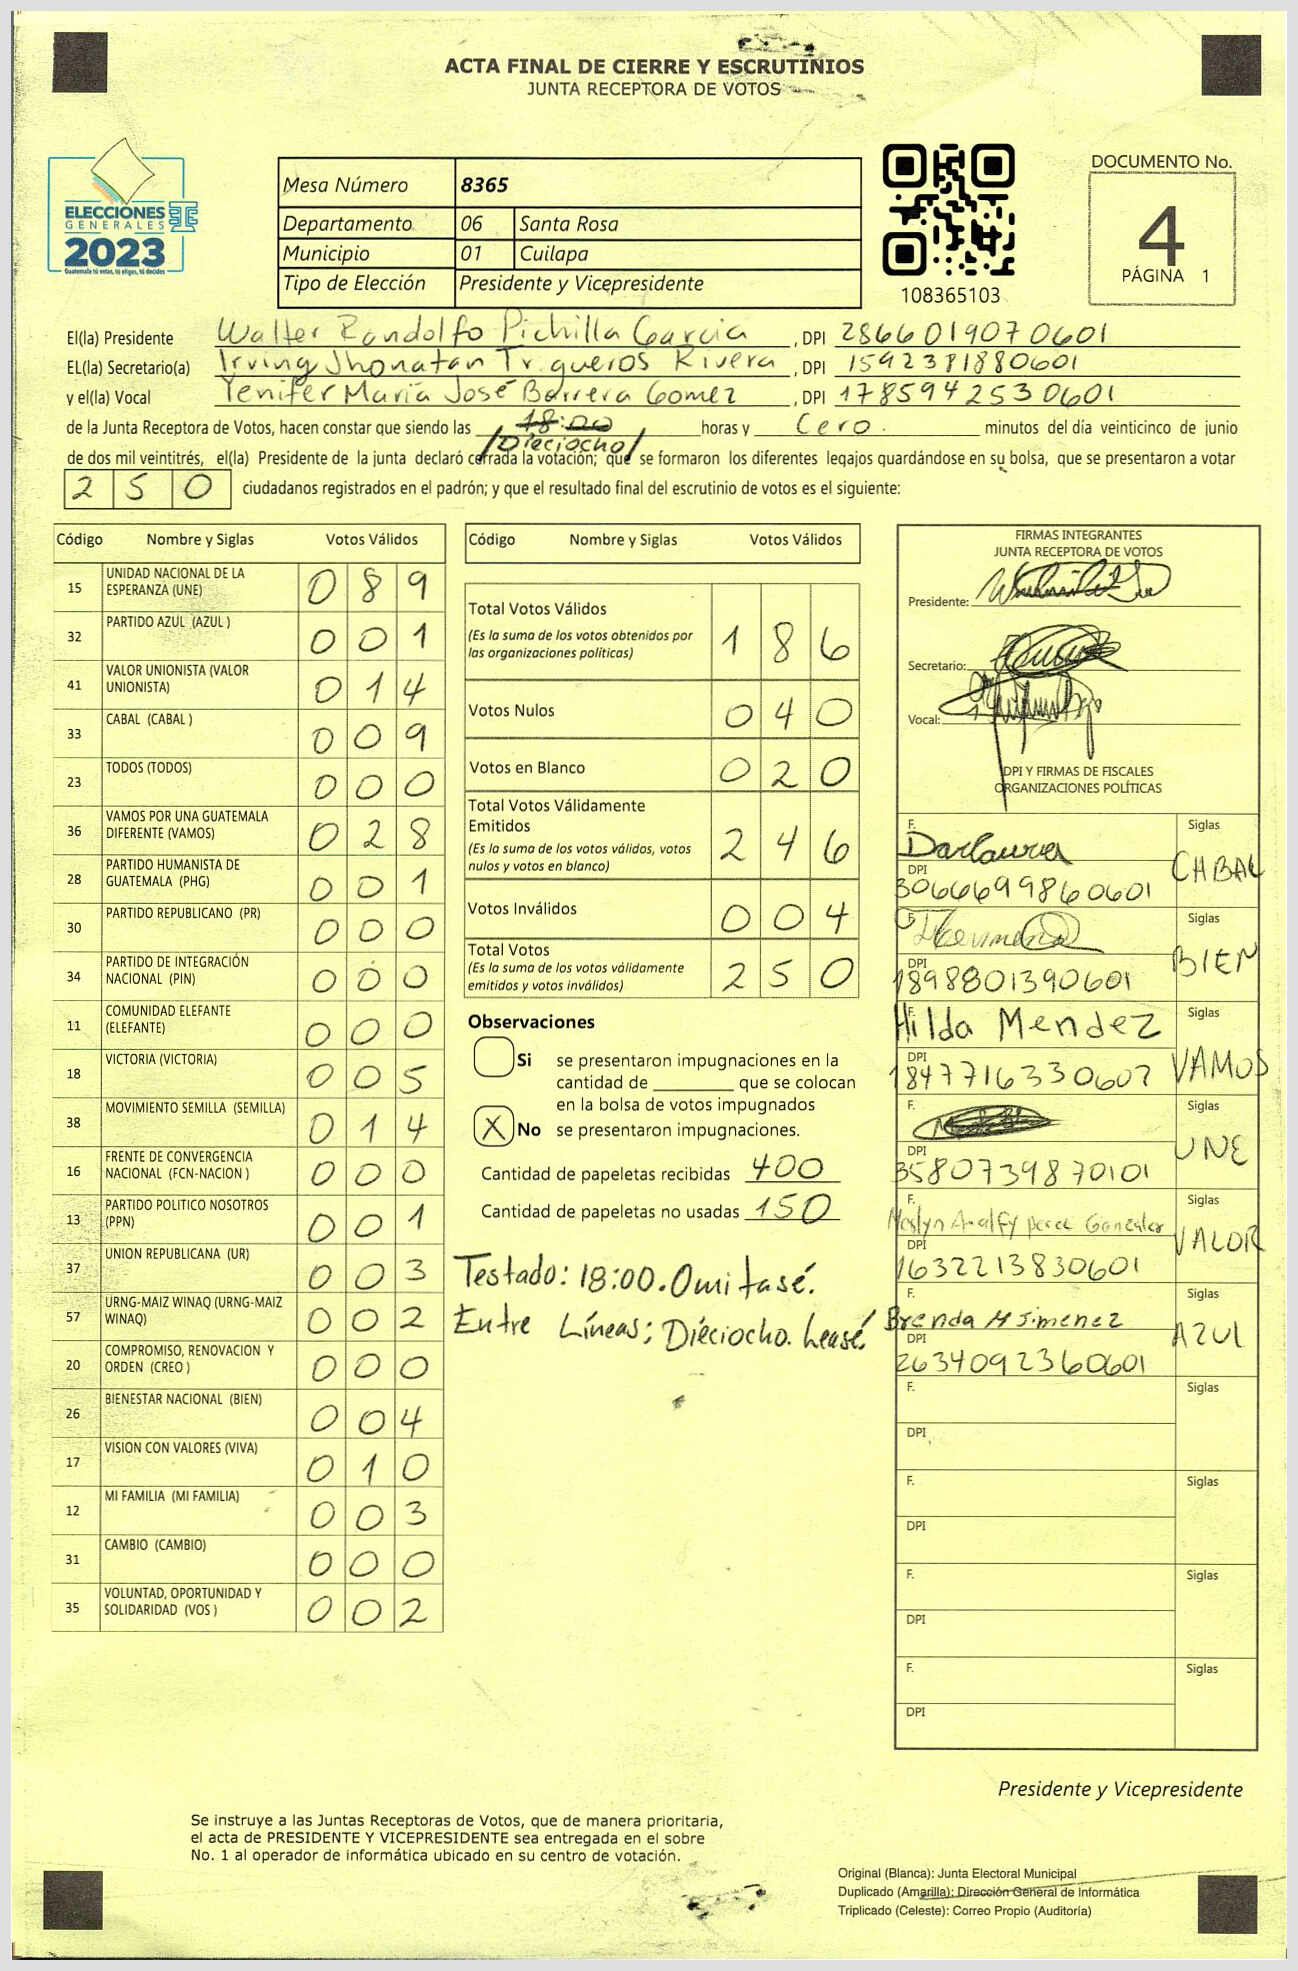 ACTA FINAL DE CIERRE Y ESCRUTINIOS
JUNTA RECEPTORA DE VOTOS
ELECCIONES
GENERALES
2023
Guatemala tú votas, tú eliges, tú decides
Mesa Número 8365
Departamento 06 Santa Rosa
Municipio 01 Cuilapa
Tipo de Elección Presidente y Vicepresidente
108365103
DOCUMENTO No.
4
PÁGINA 1
El(la) Presidente Walter Randolfo Pichilla Garcia, DPI 2866019070601
EL(la) Secretario(a) Irving Jhonatan Trigueros Rivera, DPI 1592381880601
y el(la) Vocal Yenifer María José Barrera Gomez, DPI 1785942530601
de la Junta Receptora de Votos, hacen constar que siendo las 18:00 horas y Cero. minutos del día veinticinco de junio
/Dieciocho/
de dos mil veintitrés, el(la) Presidente de la junta declaró cerrada la votación; que se formaron los diferentes legajos guardándose en su bolsa, que se presentaron a votar
250 ciudadanos registrados en el padrón; y que el resultado final del escrutinio de votos es el siguiente:
Código Nombre y Siglas Votos Válidos
15 UNIDAD NACIONAL DE LA ESPERANZA (UNE) 089
32 PARTIDO AZUL (AZUL ) 001
41 VALOR UNIONISTA (VALOR UNIONISTA) 014
33 CABAL (CABAL ) 009
23 TODOS (TODOS) 000
36 VAMOS POR UNA GUATEMALA DIFERENTE (VAMOS) 028
28 PARTIDO HUMANISTA DE GUATEMALA (PHG) 001
30 PARTIDO REPUBLICANO (PR) 000
34 PARTIDO DE INTEGRACIÓN NACIONAL (PIN) 000
11 COMUNIDAD ELEFANTE (ELEFANTE) 000
18 VICTORIA (VICTORIA) 005
38 MOVIMIENTO SEMILLA (SEMILLA) 014
16 FRENTE DE CONVERGENCIA NACIONAL (FCN-NACION ) 000
13 PARTIDO POLITICO NOSOTROS (PPN) 001
37 UNION REPUBLICANA (UR) 003
57 URNG-MAIZ WINAQ (URNG-MAIZ WINAQ) 002
20 COMPROMISO, RENOVACION Y ORDEN (CREO ) 000
26 BIENESTAR NACIONAL (BIEN) 004
17 VISION CON VALORES (VIVA) 010
12 MI FAMILIA (MI FAMILIA) 003
31 CAMBIO (CAMBIO) 000
35 VOLUNTAD, OPORTUNIDAD Y SOLIDARIDAD (VOS ) 002
Código Nombre y Siglas Votos Válidos
Total Votos Válidos 186
(Es la suma de los votos obtenidos por
las organizaciones políticas)
Votos Nulos 040
Votos en Blanco 020
Total Votos Válidamente
Emitidos 246
(Es la suma de los votos válidos, votos
nulos y votos en blanco)
Votos Inválidos 004
Total Votos 250
(Es la suma de los votos válidamente
emitidos y votos inválidos)
Observaciones
Si se presentaron impugnaciones en la
cantidad de ________ que se colocan
en la bolsa de votos impugnados
X No se presentaron impugnaciones.
Cantidad de papeletas recibidas 400
Cantidad de papeletas no usadas 150
Testado: 18:00. Omitasé.
Entre Líneas: Dieciocho. Leasé!
FIRMAS INTEGRANTES
JUNTA RECEPTORA DE VOTOS
Presidente:
Secretario:
Vocal:
DPI Y FIRMAS DE FISCALES
ORGANIZACIONES POLÍTICAS
F. Siglas CABAL
DPI 3066699860601
F. Siglas BIEN
DPI 1898801390601
F. Hilda Mendez Siglas VAMOS
DPI 1847716330607
F. Siglas UNE
DPI 3580739870101
F. Siglas VALOR
DPI 1632213830601
F. Brenda M Jimenez Siglas AZUL
DPI 2634092360601
F. Siglas
DPI
F. Siglas
DPI
F. Siglas
DPI
F. Siglas
DPI
Presidente y Vicepresidente
Se instruye a las Juntas Receptoras de Votos, que de manera prioritaria,
el acta de PRESIDENTE Y VICEPRESIDENTE sea entregada en el sobre
No. 1 al operador de informática ubicado en su centro de votación.
Original (Blanca): Junta Electoral Municipal
Duplicado (Amarilla): Dirección General de Informática
Triplicado (Celeste): Correo Propio (Auditoría)